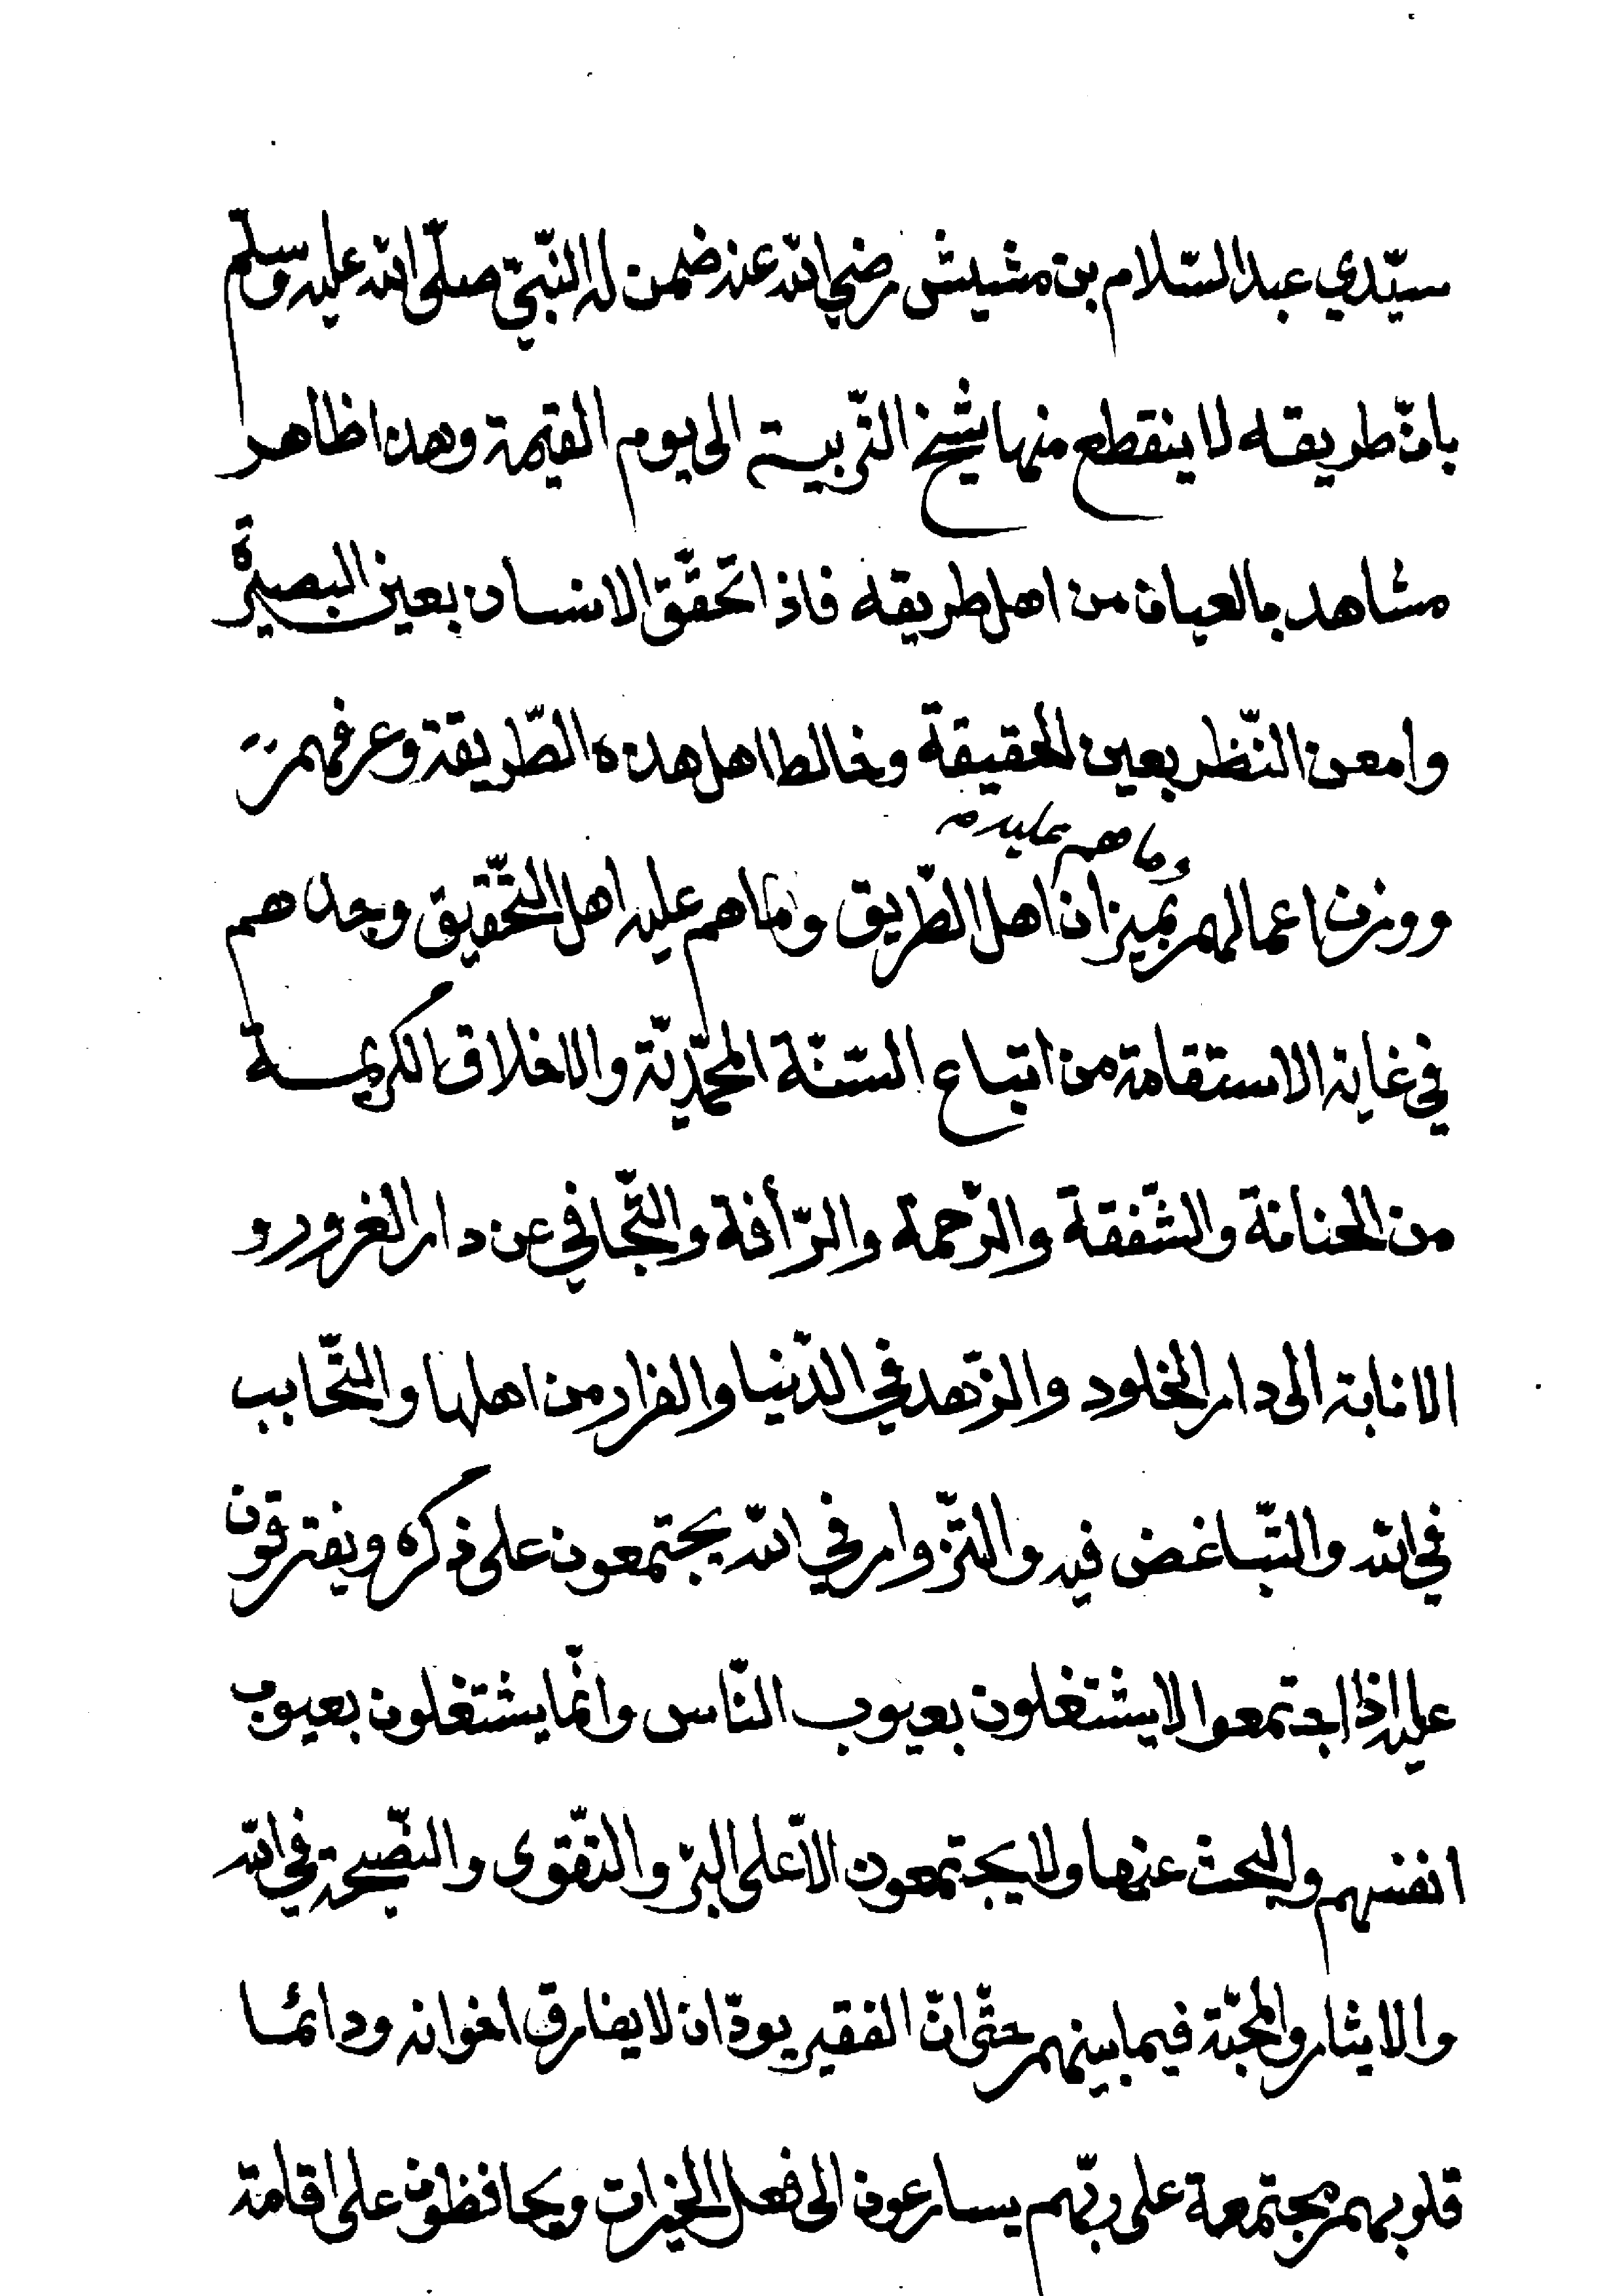 سيّدي عبد السّلام بن مشيش رضي الله عنه ضمن له النّبيّ صلّى الله عليه وسلم
بانّ طريقه لا ينقطع منها شيخ التّربية الى يوم القيمة وهذا ظاهر
مشاهد بالعيان من اهل طريقه فاذا تحقّق الانسان بعين البصيرة
وامعن النّظر بعين الحقيقة وخالط اهل هذه الطّريقة وعرفهم
وما هم عليه
ووزن اعمالهم بميزان اهل الطّريق وما هم عليه اهل التّحقيق وجدهم
في غاية الاستقامة من اتباع السّنّة المحمّديّة والاخلاق الكريمة
من الحنانة والشّفقة والرّحمة والرّأفة والتّجافي عن دار الغرور و
الانابة الى دار الخلود والزّهد في الدّنيا والفرار من اهلها والتّحابب
في الله والتّباغض فيه والتّزاور في الله يجتمعون على ذكره ويفترقون
عليه اذا اجتمعوا لا يشتغلون بعيوب النّاس وانّما يشتغلون بعيوب
انفسهم والبحث عنها ولا يجتمعون الاّ على البرّ والتّقوى والنّصيحة في الله
والايثار والمحبّة فيما بينهم حتّى انّ الفقير يودّ ان لا يفارق اخوانه ودائما
قلوبهم مجتمعة على ربّهم يسارعون الى فعل الخيرات ويحافظون على اقامة